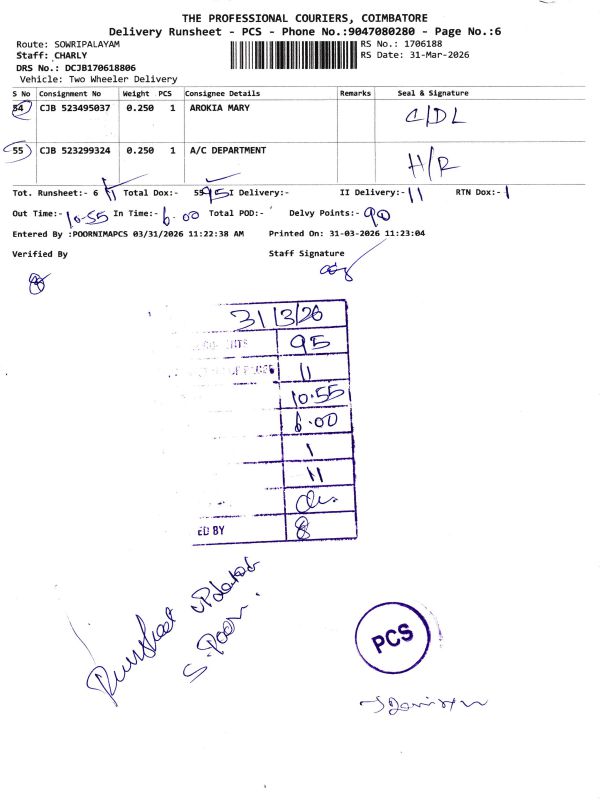 THE PROFESSIONAL COURIERS, COIMBATORE
Delivery Runsheet - PCS - Phone No.:9047080280 - Page No.:6
Route: SOWRIPALAYAM RS No.: 1706188
Staff: CHARLY RS Date: 31-Mar-2026
DRS No.: DCJB170618806
Vehicle: Two Wheeler Delivery
S No Consignment No Weight PCS Consignee Details Remarks Seal & Signature
54 CJB 523495037 0.250 1 AROKIA MARY C/DL
55 CJB 523299324 0.250 1 A/C DEPARTMENT H/R
Tot. Runsheet:- 6 11 Total Dox:- 55 95 I Delivery:- II Delivery:- 11 RTN Dox:- 1
Out Time:- 10.55 In Time:- 6.00 Total POD:- Delvy Points:- 90
Entered By :POORNIMAPCS 03/31/2026 11:22:38 AM Printed On: 31-03-2026 11:23:04
Verified By Staff Signature
31/3/26
95
11
10.55
6.00
1
11
ED BY 8
Runsheet updated
S. Poor.
PCS